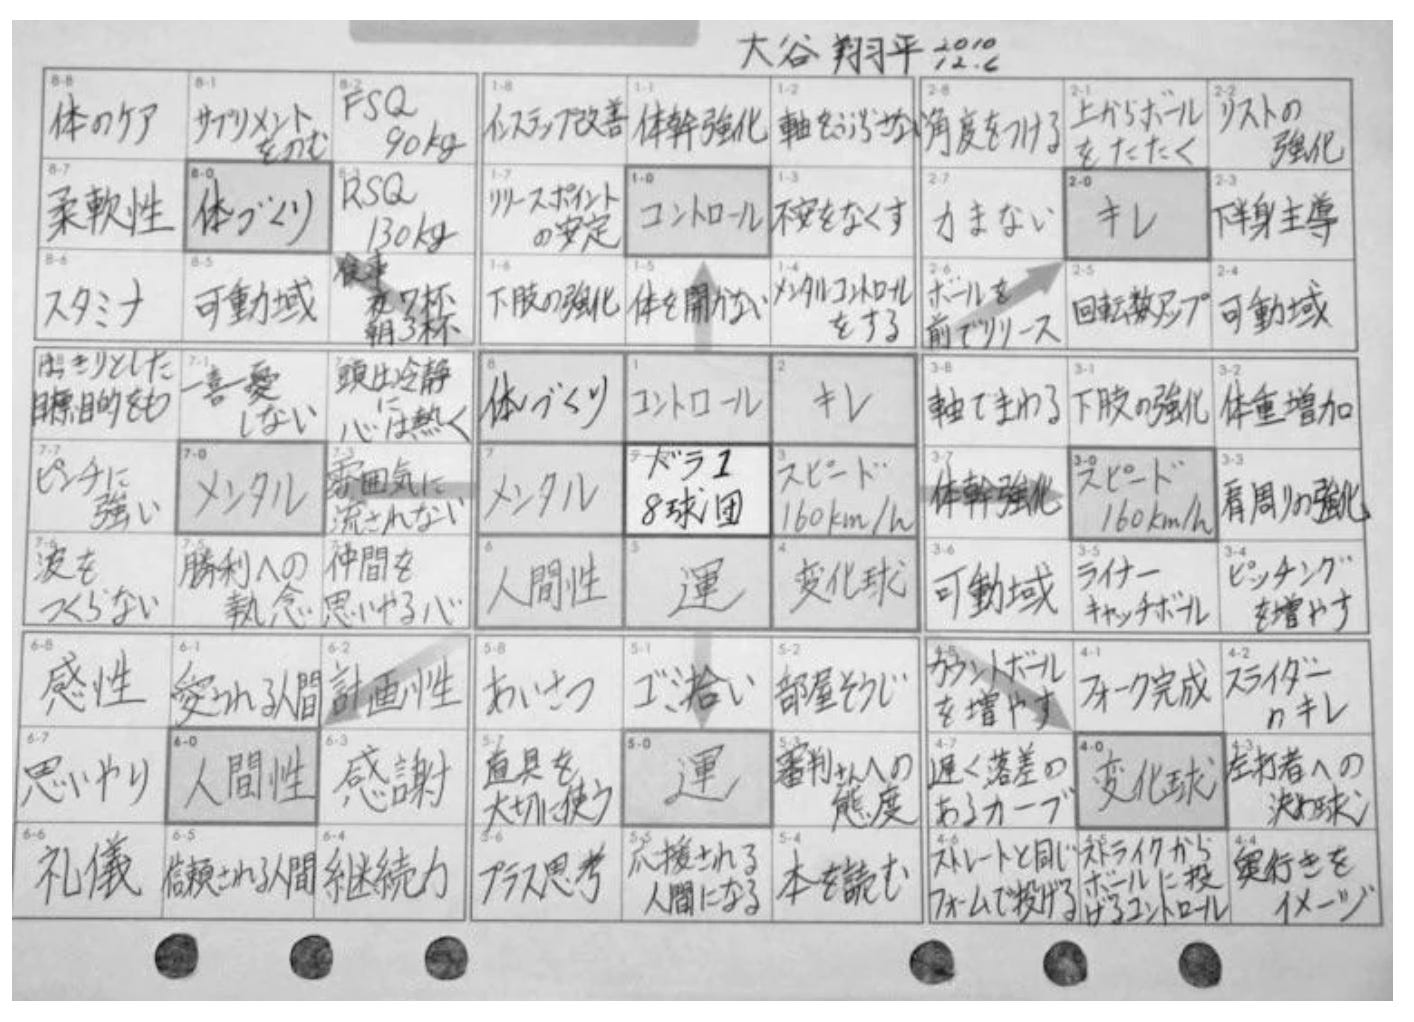 大谷 翔平 2010
12.6
8-8 体のケア
8-1 サプリメント
をのむ
8-2 FSQ
90kg
8-7 柔軟性
8-0 体づくり
RSQ
130kg
8-6 スタミナ
8-5 可動域
食事
夜7杯
朝3杯
1-8 インステップ改善
1-1 体幹強化
1-2 軸をぶらさない
1-7 リリースポイント
の安定
1-0 コントロール
1-3 不安をなくす
1-6 下肢の強化
1-5 体を開かない
1-4 メンタルコントロール
をする
2-8 角度をつける
2-1 上からボール
をたたく
2-2 リストの
強化
2-7 力まない
2-0 キレ
2-3 下半身主導
2-6 ボールを
前でリリース
2-5 回転数アップ
2-4 可動域
はっきりとした
目標、目的をもつ
7-1 一喜一憂
しない
頭は冷静
に
心は熱く
7-7 ピンチに
強い
7-0 メンタル
7-3 雰囲気に
流されない
7-6 波を
つくらない
7-5 勝利への
執念
仲間を
思いやる心
8 体づくり
1 コントロール
2 キレ
7 メンタル
ドラ1
8球団
3 スピード
160km/h
6 人間性
5 運
4 変化球
3-8 軸でまわる
3-1 下肢の強化
3-2 体重増加
3-7 体幹強化
3-0 スピード
160km/h
3-3 肩周りの強化
3-6 可動域
3-5 ライナー
キャッチボール
3-4 ピッチング
を増やす
6-8 感性
6-1 愛される人間
6-2 計画性
6-7 思いやり
6-0 人間性
6-3 感謝
6-6 礼儀
6-5 信頼される人間
6-4 継続力
5-8 あいさつ
5-1 ゴミ拾い
5-2 部屋そうじ
5-7 道具を
大切に使う
5-0 運
5-3 審判さんへの
態度
5-6 プラス思考
5-5 応援される
人間になる
5-4 本を読む
カウントボール
を増やす
4-1 フォーク完成
4-2 スライダー
のキレ
4-7 遅く落差の
あるカーブ
4-0 変化球
4-3 左打者への
決め球
4-6 ストレートと同じ
フォームで投げる
4-5 ストライクから
ボールに投
げるコントロール
4-4 奥行きを
イメージ